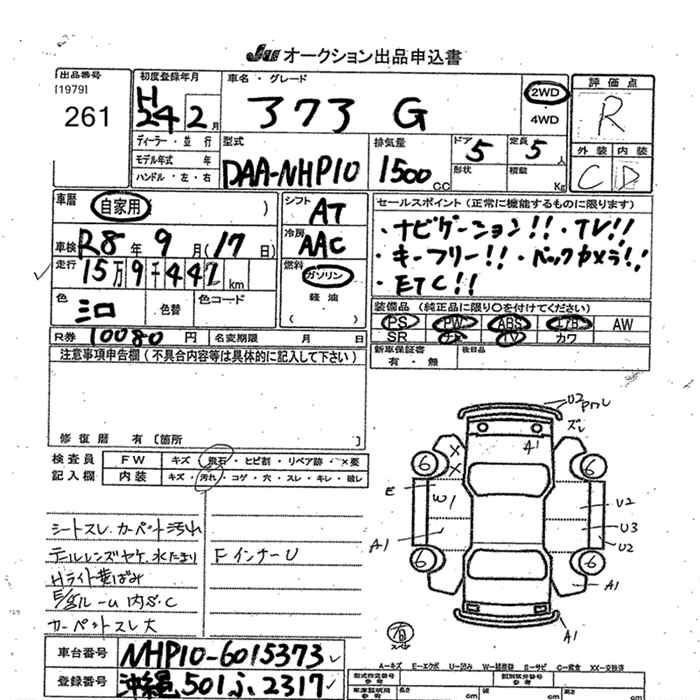 JU オークション出品申込書
出品番号
[1979]
261
初度登録年月
H
24 2月
ディーラー・並行
モデル年式 年
ハンドル・左・右
車名・グレード
373 G
2WD
4WD
評価点
R
外装 内装
C D
型式
DAA-NHP10
排気量
1500 CC
ドア 5
形状
定員 5 人
積載 Kg
車歴
自家用 )
車検 R8年 9月(17日)
走行 15万9千442km
色
色替
色コード
シフト
AT
冷房
AAC
燃料
ガソリン
軽油
( )
セールスポイント(正常に機能するものに限ります)
・ナビゲーション!!・TV!!
・キーフリー!!・バックカメラ!!
・ETC!!
装備品(純正品に限り○を付けてください)
PS PW ABS エアB AW
SR ナビ TV カワ
新車保証書
有・無
後日品
R券 10080 円
名変期限 月 日
注意事項申告欄(不具合内容等は具体的に記入して下さい)
修復歴 有〔箇所 〕
検査員
記入欄
FW
キズ・飛石・ヒビ割・リペア跡・×要
内装
キズ・汚れ・コゲ・穴・スレ・キレ・破レ
シートスレ カーペット汚れ
テールレンズヤケ、水たまり
FインナーU
Hライト黄ばみ
カーペットスレ大
U2
ズレ
A1
6
6
E
W1
U2
U3
U2
A1
6
6
A1
A1
A-キズ E-エクボ U-凹み
車台番号
NHP10-6015373
登録番号
沖縄501ふ2317